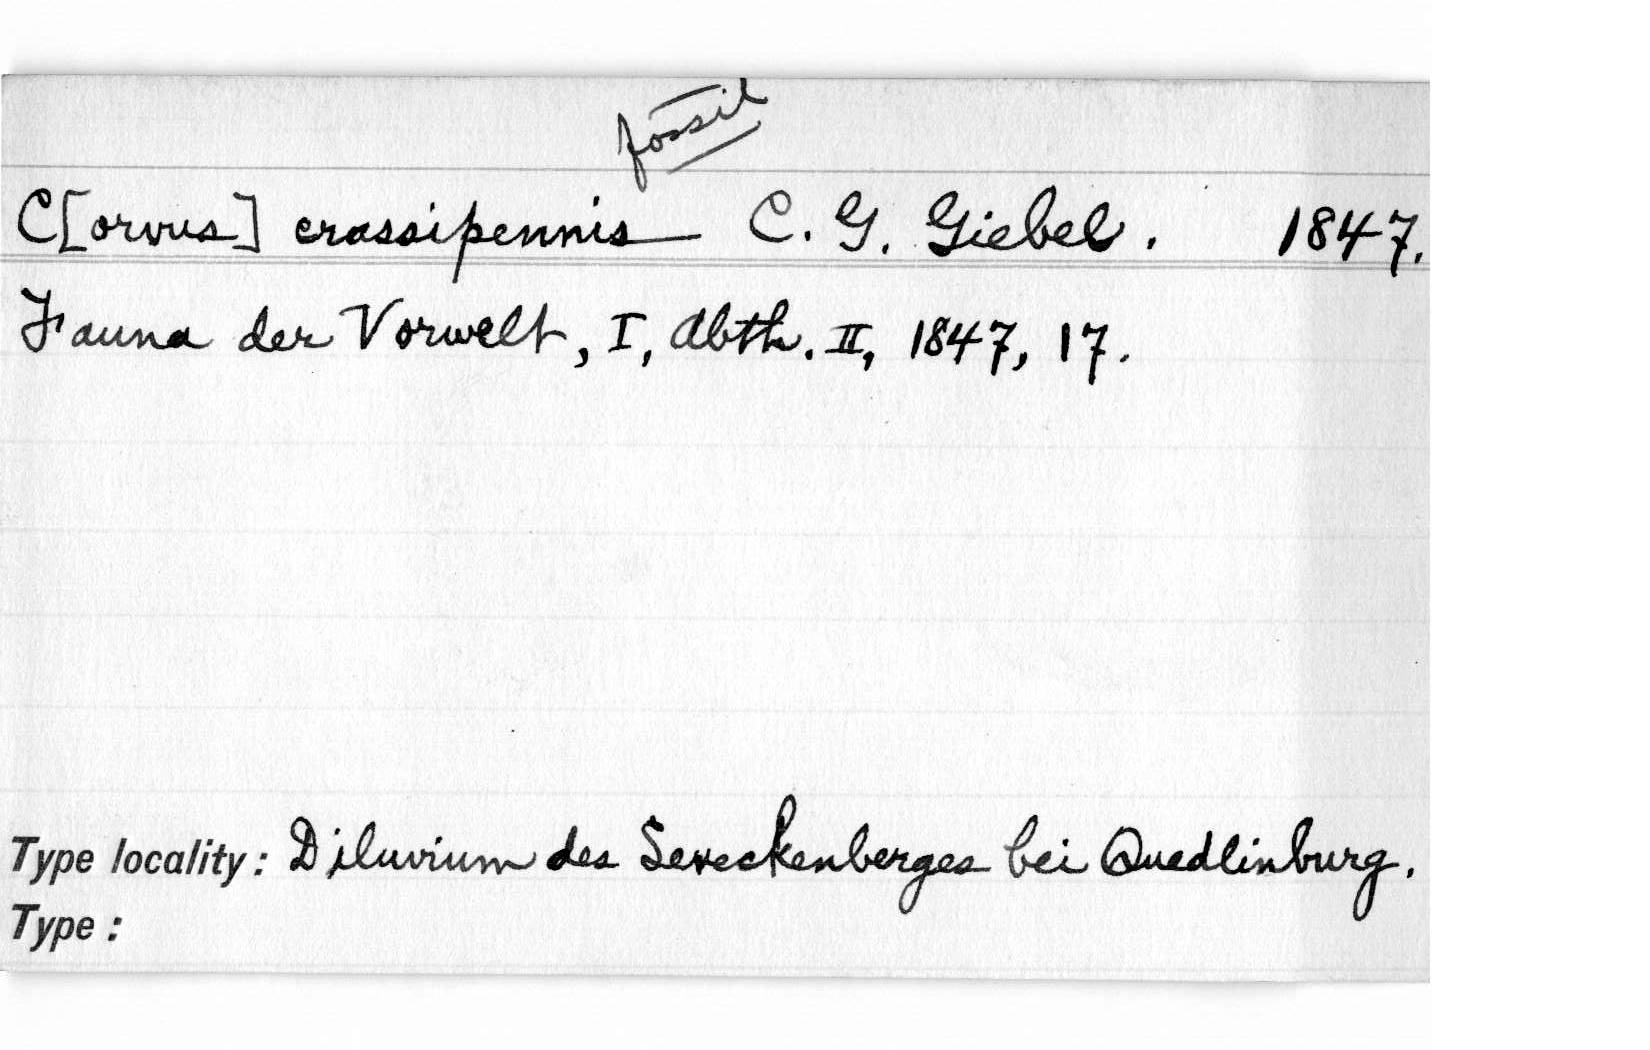 fossil
C[orvus] crassipennis C. G. Giebel. 1847.
Fauna der Vorwelt, I, Abth. II, 1847, 17.
Type locality: Diluvium des Seveckenberges bei Quedlinburg.
Type: